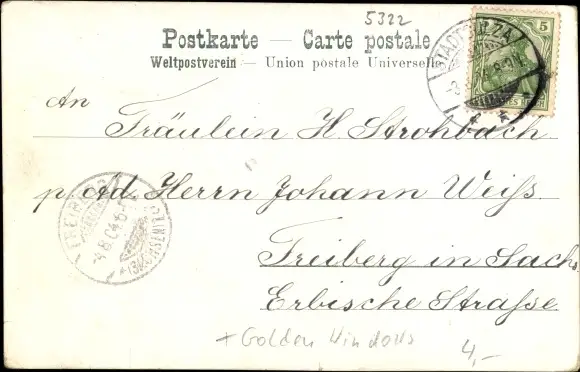 5322
Postkarte — Carte postale
Weltpostverein — Union postale Universelle
5
STADTSULZA
An
Fräulein H. Strohbach
p. Ad. Herrn Johann Weiß
Freiberg in Sachs.
Erbische Straße
FREIBERG
(SACHSEN)
+ Golden Windows
4,-